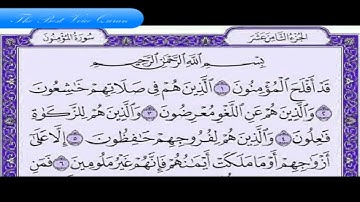 The Best Voice Quran
سُورَةُ المُؤْمِنُونَ
الجُزْءُ الثَّامِنُ عَشَرَ
بِسْمِ اللَّهِ الرَّحْمَٰنِ الرَّحِيمِ
قَدْ أَفْلَحَ الْمُؤْمِنُونَ ١ الَّذِينَ هُمْ فِي صَلَاتِهِمْ خَاشِعُونَ
٢ وَالَّذِينَ هُمْ عَنِ اللَّغْوِ مُعْرِضُونَ ٣ وَالَّذِينَ هُمْ لِلزَّكَاةِ
فَاعِلُونَ ٤ وَالَّذِينَ هُمْ لِفُرُوجِهِمْ حَافِظُونَ ٥ إِلَّا عَلَىٰ
أَزْوَاجِهِمْ أَوْ مَا مَلَكَتْ أَيْمَانُهُمْ فَإِنَّهُمْ غَيْرُ مَلُومِينَ ٦ فَمَنِ